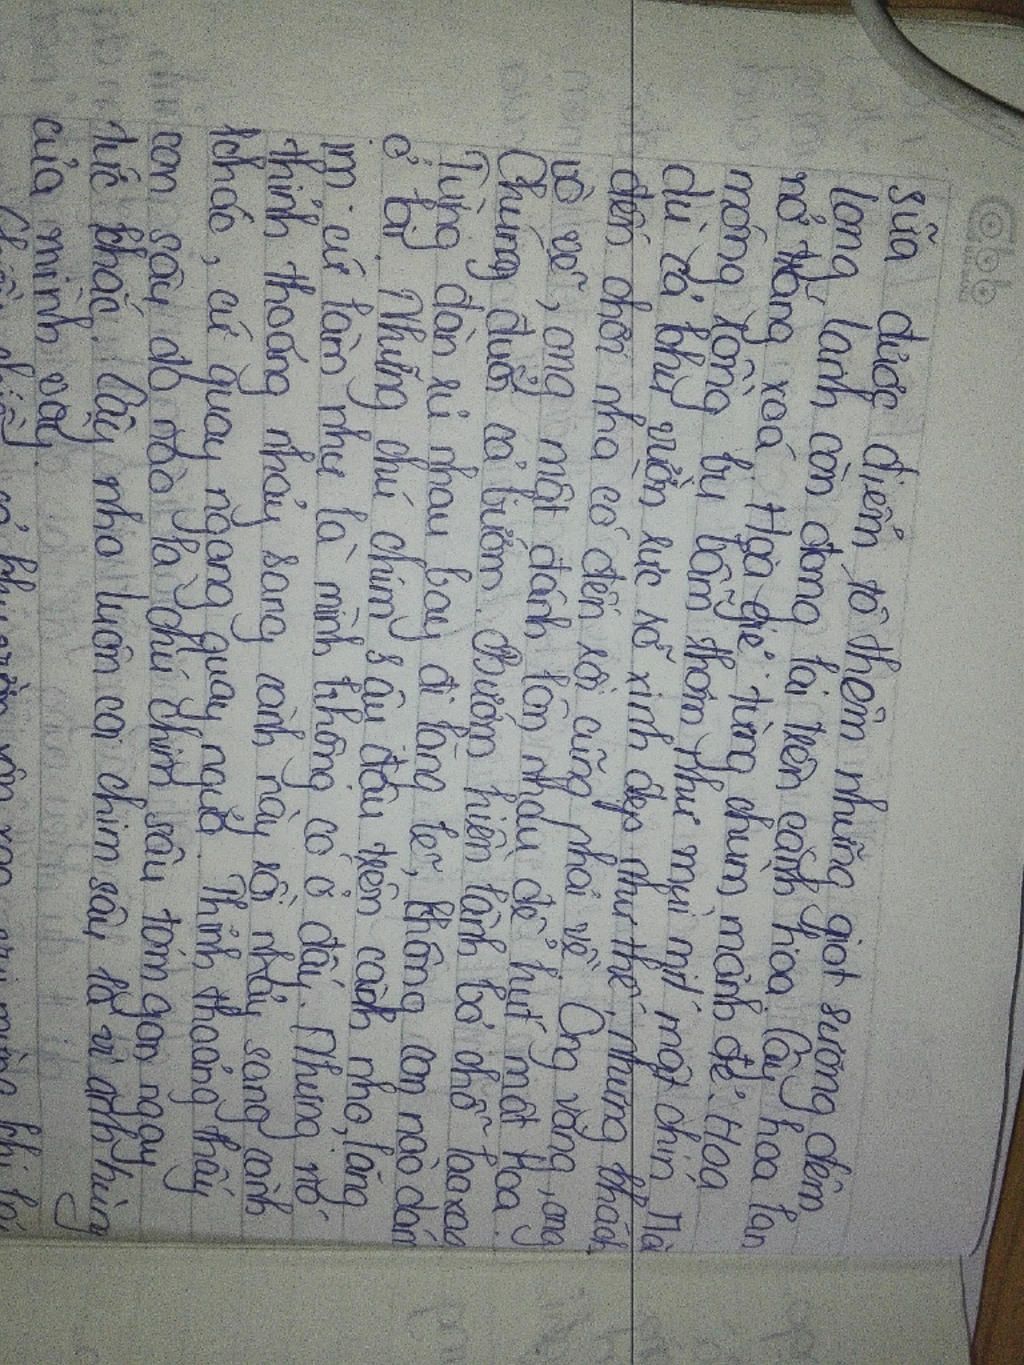 sữa được điểm tô thêm những giọt sương đêm
long lanh còn đọng lại trên cành hoa. Cây hoa lan
nở trắng xoá. Hoa giẻ từng chùm mảnh dẻ. Hoa
móng rồng bụ bẫm thơm như mùi mít mật chín. Mà
dù cả khu vườn lực rỡ xinh đẹp như thế, nhưng khách
đến chơi nhà có đến rồi cũng phải về. Ong vàng, ong
vò vẽ, ong mật đánh lộn nhau để hút mật hoa.
Chúng đuổi cả bướm. Bướm hiền lành bỏ chỗ lao xao
Từng đàn rủ nhau bay đi lặng lẽ, không con nào dám
ở lại. Những chú chim sâu đậu trên cành nho, lặng
im cứ làm như là mình không có ở đấy. Nhưng nó
thỉnh thoảng nhảy sang cành này rồi nhảy sang cành
khác, cứ quay ngang quay ngửa. Thỉnh thoảng thấy
con sâu đo nào là chú chim sâu tóm gọn ngay
tức khắc. Cây nho luôn coi chim sâu là vị anh hùng
của mình vậy.